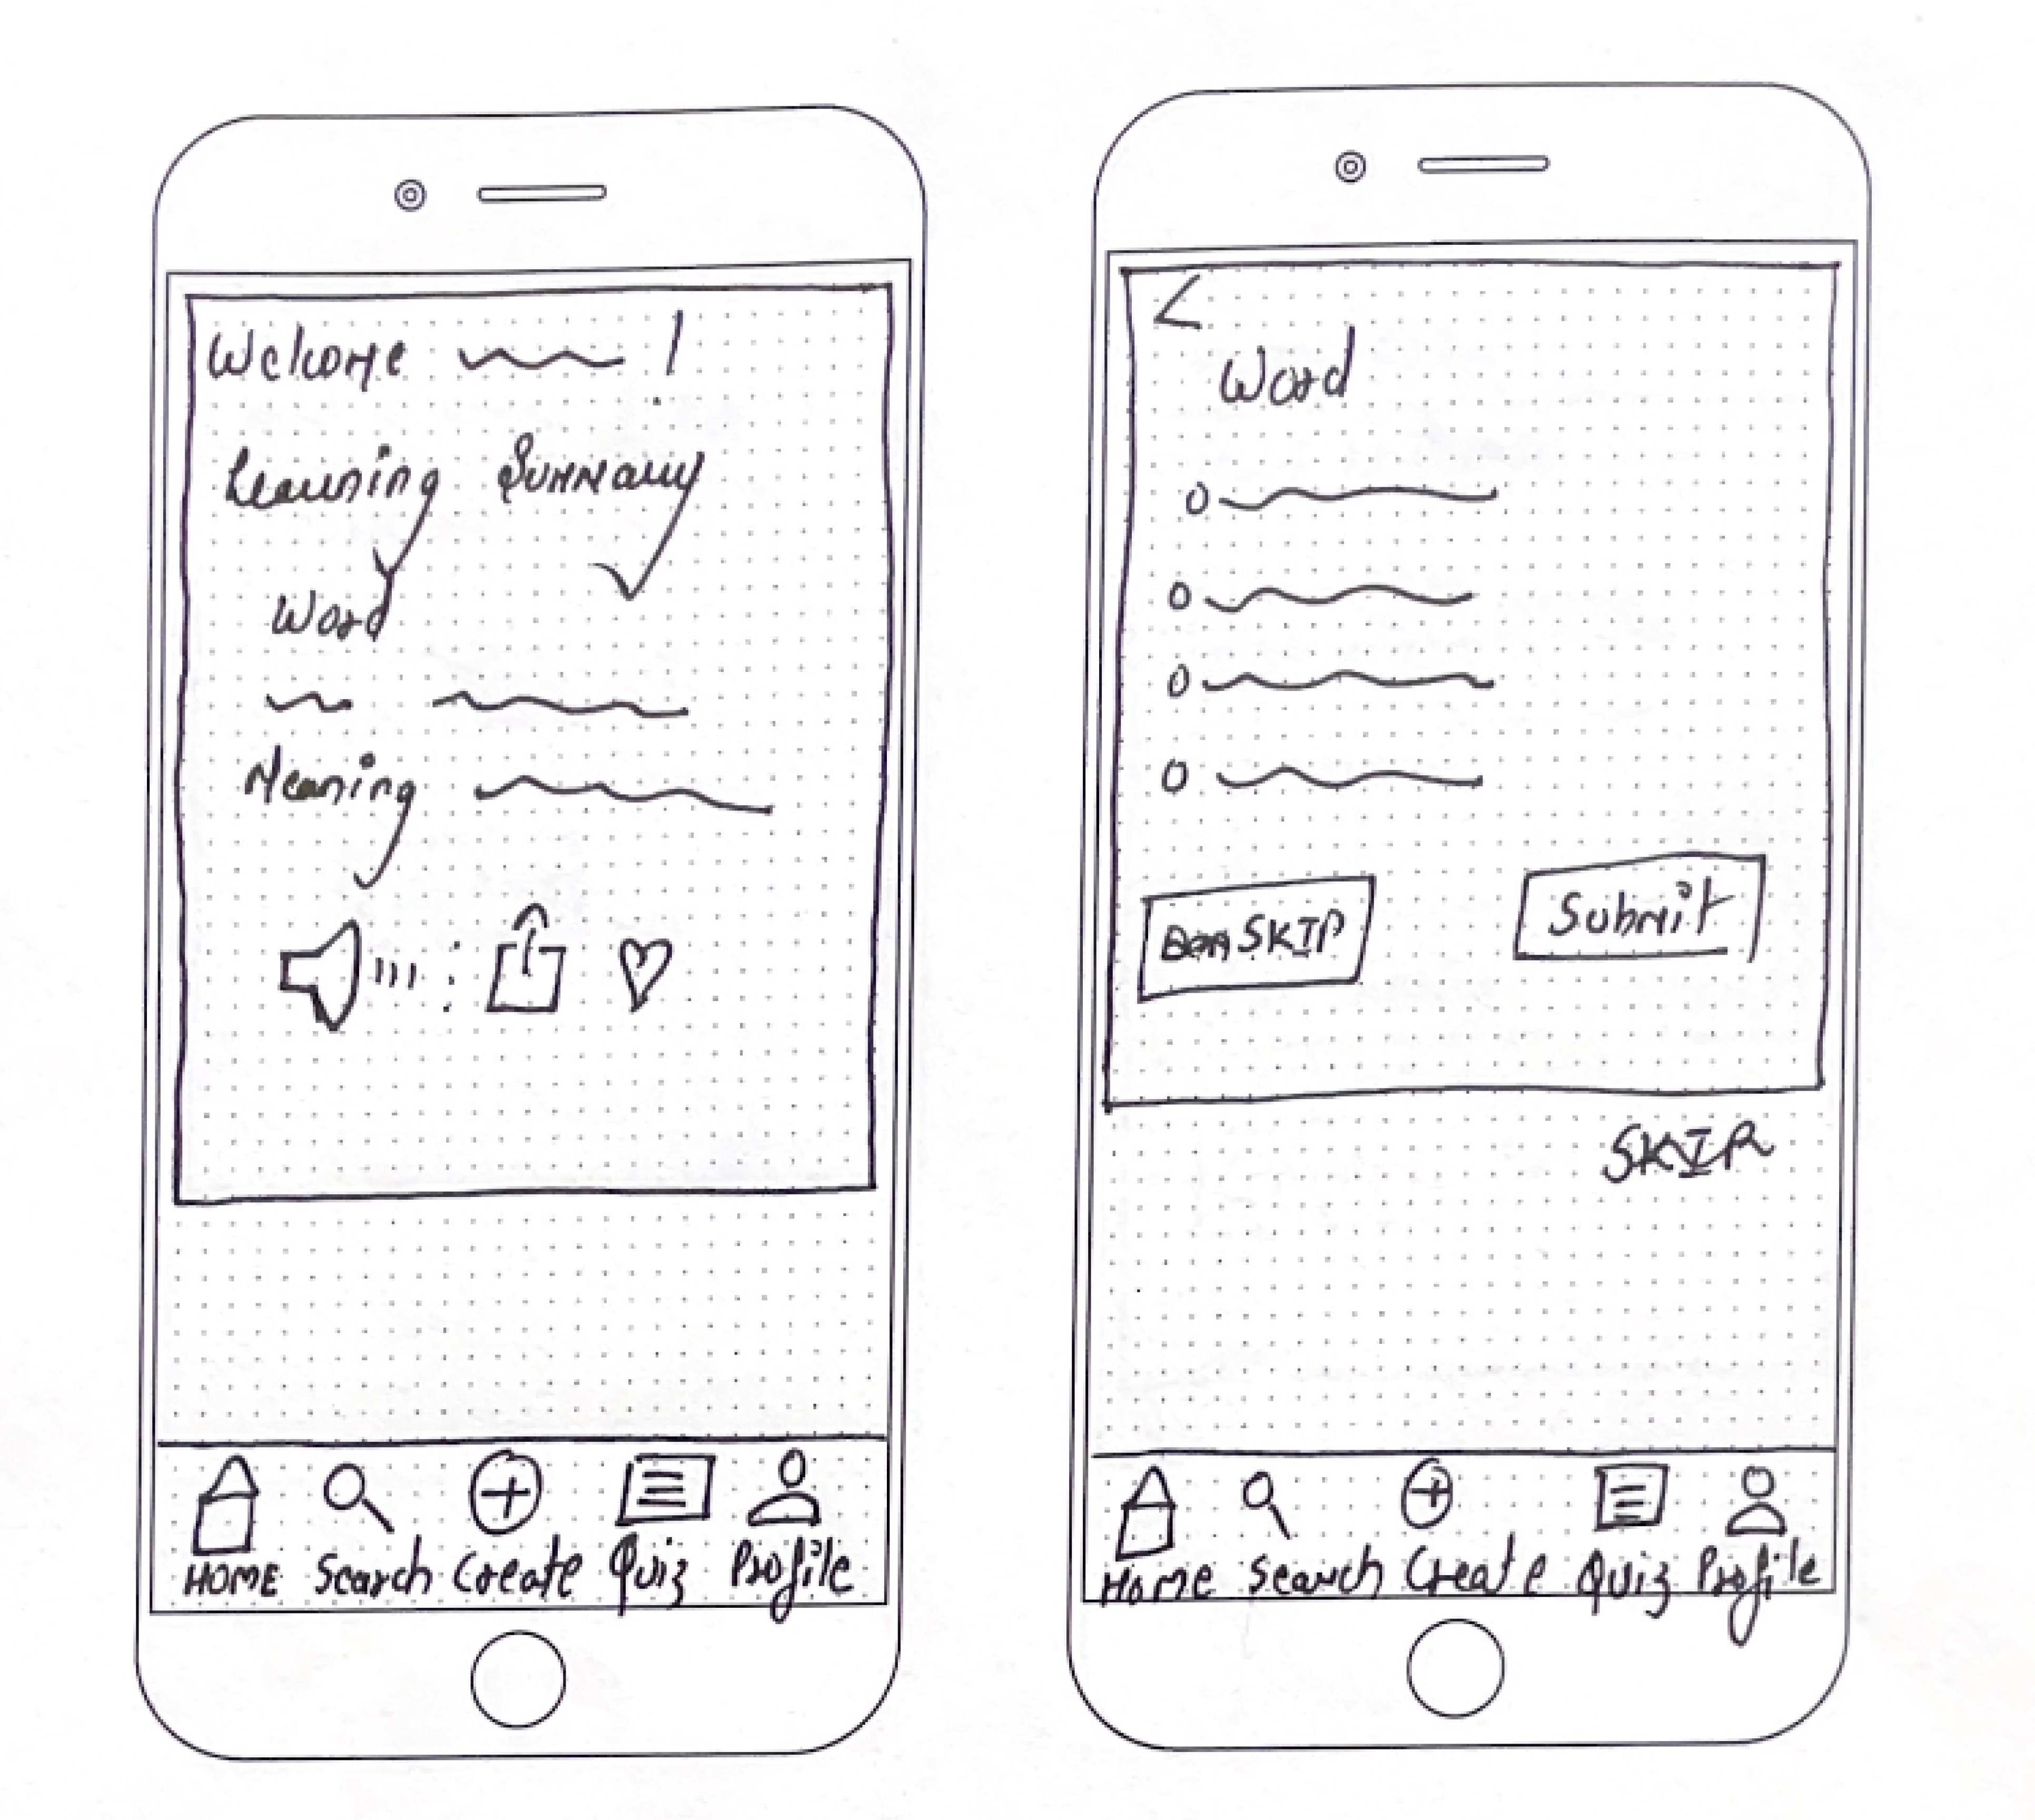 Welcome !
Learning Summary
Word
Meaning
HOME Search Create Quiz Profile
<
Word
SKIP Submit
SKIP
Home Search Create Quiz Profile